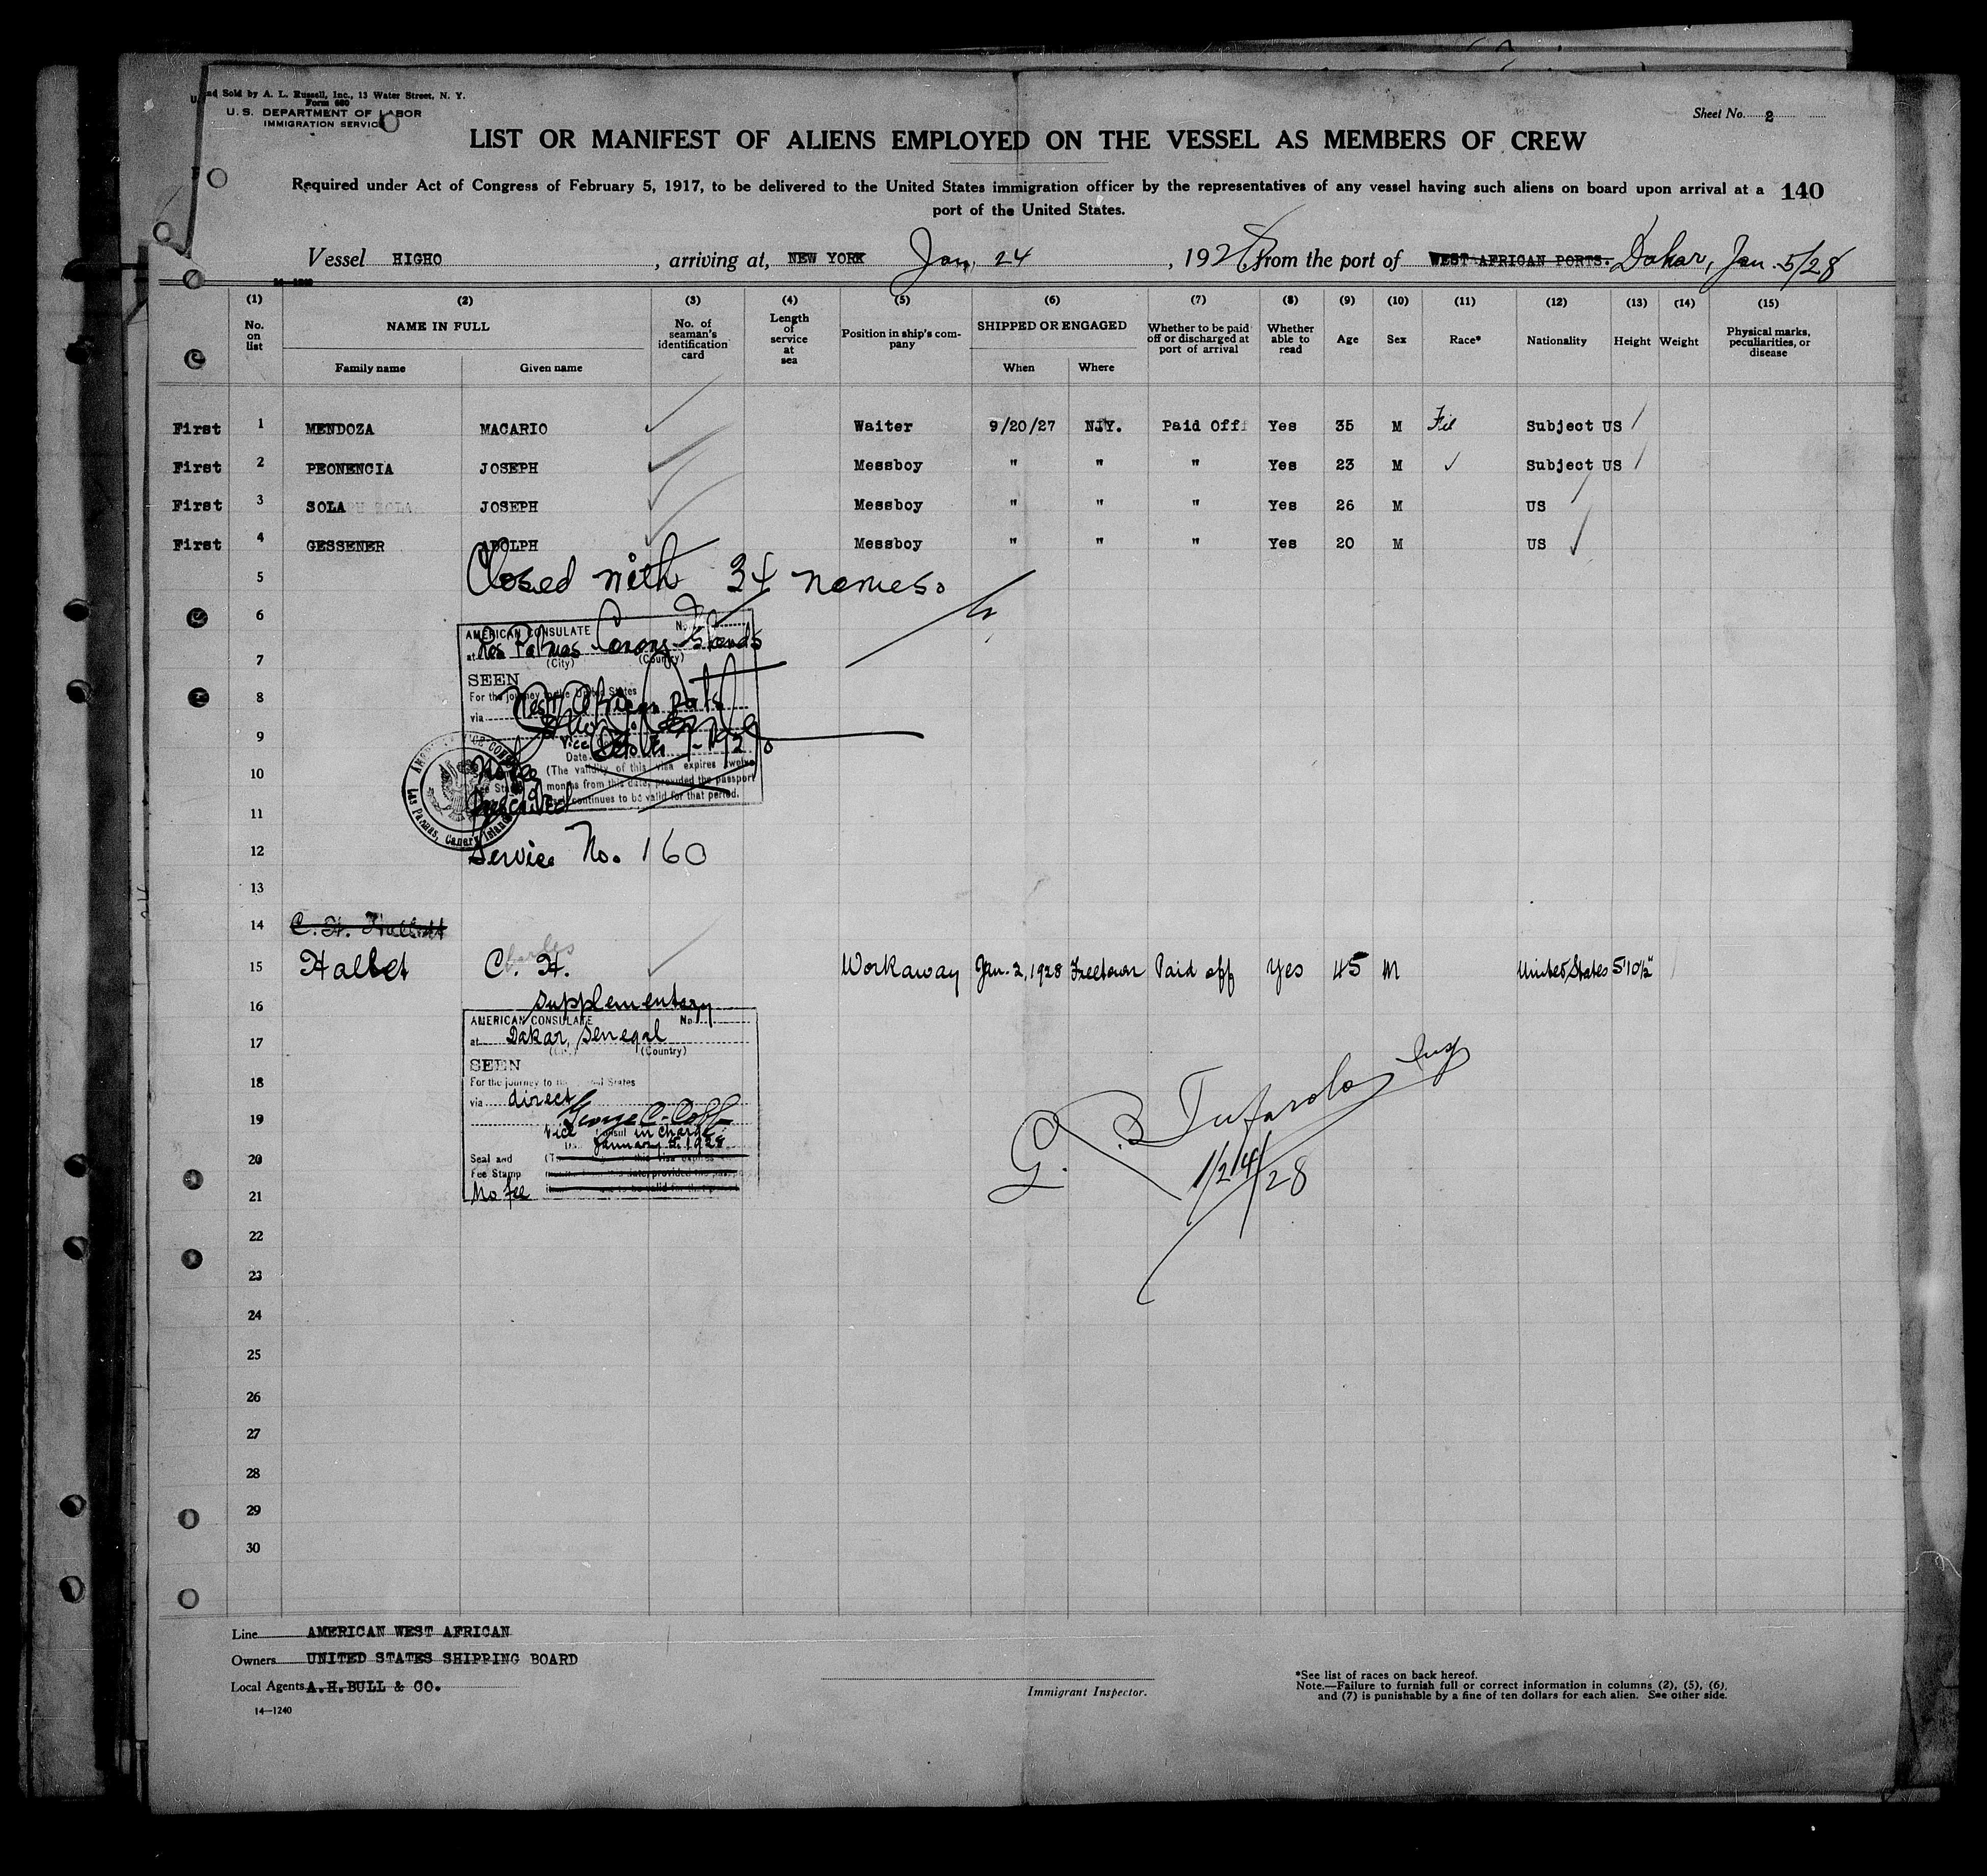 nd Sold by A. L. Russell, Inc., 13 Water Street, N. Y.
Form 680
U. S. DEPARTMENT OF LABOR
IMMIGRATION SERVICE
Sheet No. 2
LIST OR MANIFEST OF ALIENS EMPLOYED ON THE VESSEL AS MEMBERS OF CREW
Required under Act of Congress of February 5, 1917, to be delivered to the United States immigration officer by the representatives of any vessel having such aliens on board upon arrival at a
port of the United States.
140
Vessel HIGHO, arriving at, NEW YORK Jan. 24, 1928 from the port of WEST AFRICAN PORTS. Dakar, Jan. 5/28
14-1240
(1) (2) (3) (4) (5) (6) (7) (8) (9) (10) (11) (12) (13) (14) (15)
No. on list NAME IN FULL No. of seaman's identification card Length of service at sea Position in ship's company SHIPPED OR ENGAGED Whether to be paid off or discharged at port of arrival Whether able to read Age Sex Race* Nationality Height Weight Physical marks, peculiarities, or disease
Family name Given name When Where
First 1 MENDOZA MACARIO Waiter 9/20/27 N.Y. Paid Off Yes 35 M Fil Subject US
First 2 PEONENCIA JOSEPH Messboy " " " Yes 23 M ✓ Subject US
First 3 SOLA JOSEPH Messboy " " " Yes 26 M US
First 4 GESSENER ADOLPH Messboy " " " Yes 20 M US
5 Closed with 34 names.
6
AMERICAN CONSULATE No.
at Las Palmas Canary Islands
7 (City) (Country)
SEEN
8 For the journey to the United States
via West African Ports
9 Vice
Date
10 No fee (The validity of this visa expires twelve
months from this date, provided the passport
continues to be valid for that period.
11 prescribed
Las Palmas, Canary Islands
12 Service No. 160
13
14 C. H.
15 Halbet C. H. Workaway Jan. 2, 1928 Freetown Paid off Yes 45 M United States 5'10½"
16 Supplementary
AMERICAN CONSULATE No.
17 at Dakar, Senegal
(Country)
SEEN
18 For the journey to the United States
via direct
19 George C. Cobb
Vice Consul in charge
January 5, 1928
20 Seal and
Fee Stamp
21 No fee
G. B. Tufarolo Insp
1/24/28
22
23
24
25
26
27
28
29
30
Line AMERICAN WEST AFRICAN
Owners UNITED STATES SHIPPING BOARD
Local Agents A.H.BULL & CO.
14—1240
Immigrant Inspector.
*See list of races on back hereof.
Note.—Failure to furnish full or correct information in columns (2), (5), (6),
and (7) is punishable by a fine of ten dollars for each alien. See other side.